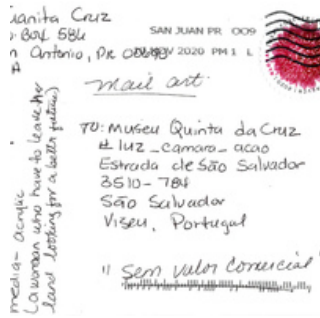 uanita Cruz
Box 584
n Antonio, PR 00690
SAN JUAN PR 009
NOV 2020 PM 1 L
mail art.
TO: Museu Quinta da Cruz
# luz_camara_acao
Estrada de São Salvador
3510-784
São Salvador
Viseu, Portugal
"Sem valor comercial"
media- acrylic
(a woman who have to leave her
land looking for a better future)